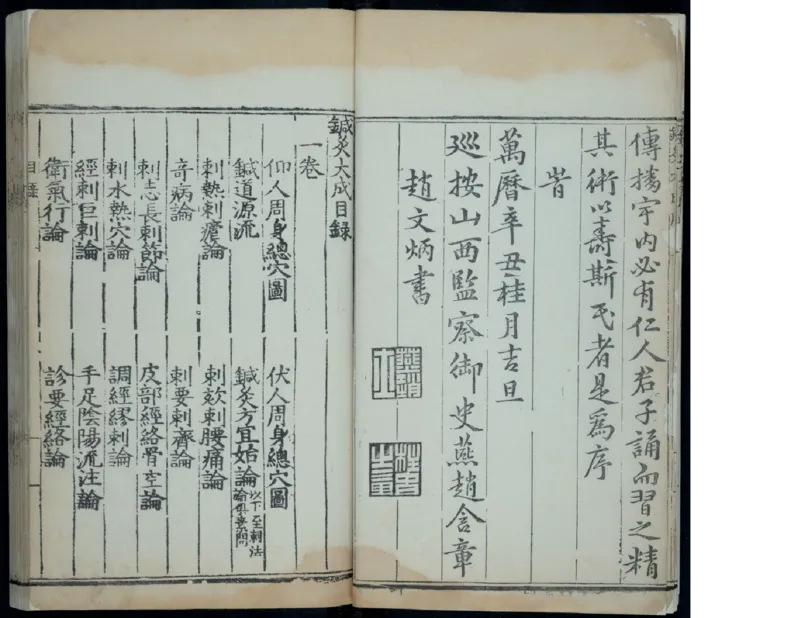 傳播宇内必有仁人君子誦而習之精
其術以壽斯民者是爲序
旹
萬曆辛丑桂月吉旦
廵按山西監察御史燕趙含章
趙文炳書
鍼灸大成目録
一卷
仰人周身總穴圖 伏人周身總穴圖
鍼道源流 鍼灸方宜始論 以下至刺法論俱素問
刺熱刺瘧論 刺欬刺腰痛論
奇病論 刺要刺齊論
刺志長刺節論 皮部經絡骨空論
刺水熱穴論 調經繆刺論
經刺巨刺論 手足陰陽流注論
衛氣行論 診要經絡論